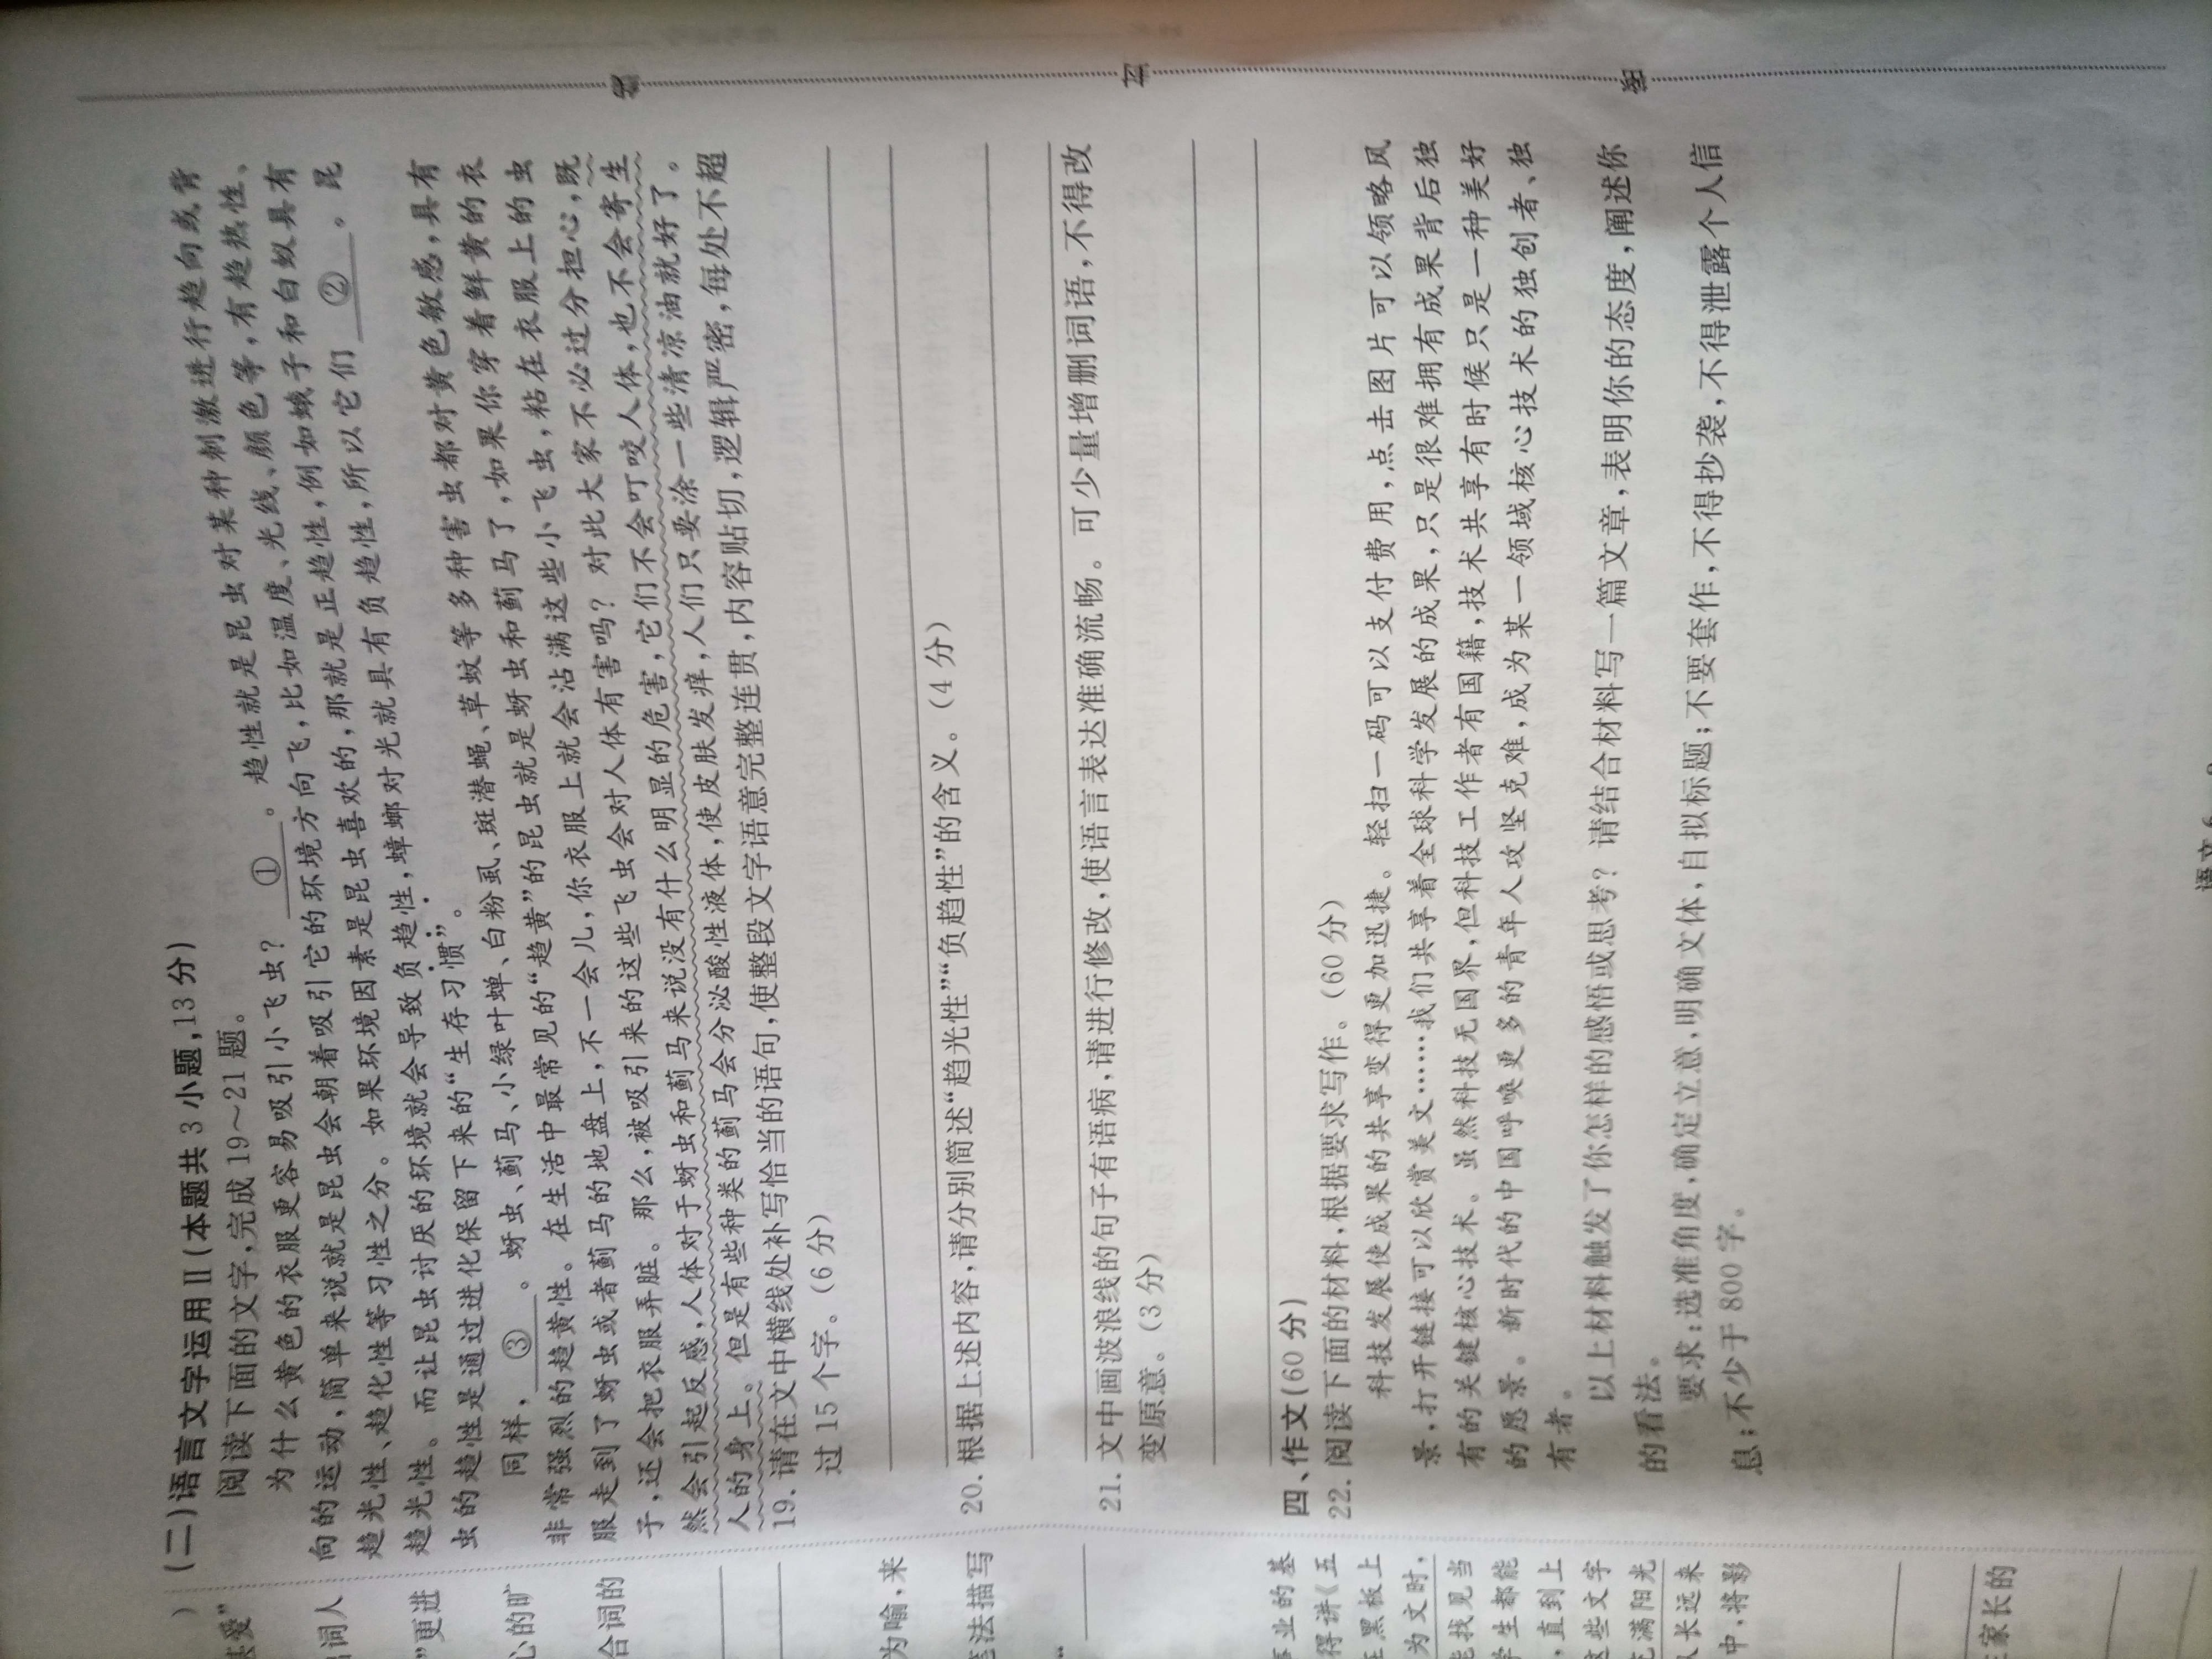 (二)语言文字运用Ⅱ(本题共3小题,13分)
阅读下面的文字,完成19~21题。
为什么黄色的衣服更容易吸引小飞虫? ① 。趋性就是昆虫对某种刺激进行趋向或背
向的运动,简单来说就是昆虫会朝着吸引它的环境方向飞,比如温度、光线、颜色等,有趋热性、
趋光性、趋化性等习性之分。如果环境因素是昆虫喜欢的,那就是正趋性,例如蛾子和白蚁具有
趋光性。而让昆虫讨厌的环境就会导致负趋性,蟑螂对光就具有负趋性,所以它们 ② 。昆
虫的趋性是通过进化保留下来的“生存习惯”。
同样, ③ 。蚜虫、蓟马、小绿叶蝉、白粉虱、斑潜蝇、草蚊等多种害虫都对黄色敏感,具有
非常强烈的趋黄性。在生活中最常见的“趋黄”的昆虫就是蚜虫和蓟马了,如果你穿着鲜黄的衣
服走到了蚜虫或者蓟马的地盘上,不一会儿,你衣服上就会沾满这些小飞虫,粘在衣服上的虫
子,还会把衣服弄脏。那么,被吸引来的这些飞虫会对人体有害吗?对此大家不必过分担心,既
然会引起反感,人体对于蚜虫和蓟马来说没有什么明显的危害,它们不会叮咬人体,也不会寄生
人的身上。但是有些种类的蓟马会分泌酸性液体,使皮肤发痒,人们只要涂一些清凉油就好了。
19. 请在文中横线处补写恰当的语句,使整段文字语意完整连贯,内容贴切,逻辑严密,每处不超
过15个字。(6分)
20. 根据上述内容,请分别简述“趋光性”“负趋性”的含义。(4分)
21. 文中画波浪线的句子有语病,请进行修改,使语言表达准确流畅。可少量增删词语,不得改
变原意。(3分)
四、作文(60分)
22. 阅读下面的材料,根据要求写作。(60分)
科技发展使成果的共享变得更加迅捷。轻扫一码可以支付费用,点击图片可以领略风
景,打开链接可以欣赏美文……我们共享着全球科学发展的成果,只是很难拥有成果背后独
有的关键核心技术。虽然科技无国界,但科技工作者有国籍,技术共享有时候只是一种美好
的愿景。新时代的中国呼唤更多的青年人攻坚克难,成为某一领域核心技术的独创者、独
有者。
以上材料触发了你怎样的感悟或思考?请结合材料写一篇文章,表明你的态度,阐述你
的看法。
要求:选准角度,确定立意,明确文体,自拟标题;不要套作,不得抄袭,不得泄露个人信
息;不少于800字。
词人
”更进
心的旷
合词的
为喻,来
笔法描写
事业的基
得讲《五
在黑板上
为文时,
能找见当
学生都能
,直到上
这些文字
充满阳光
人长远来
中,将影
家长的